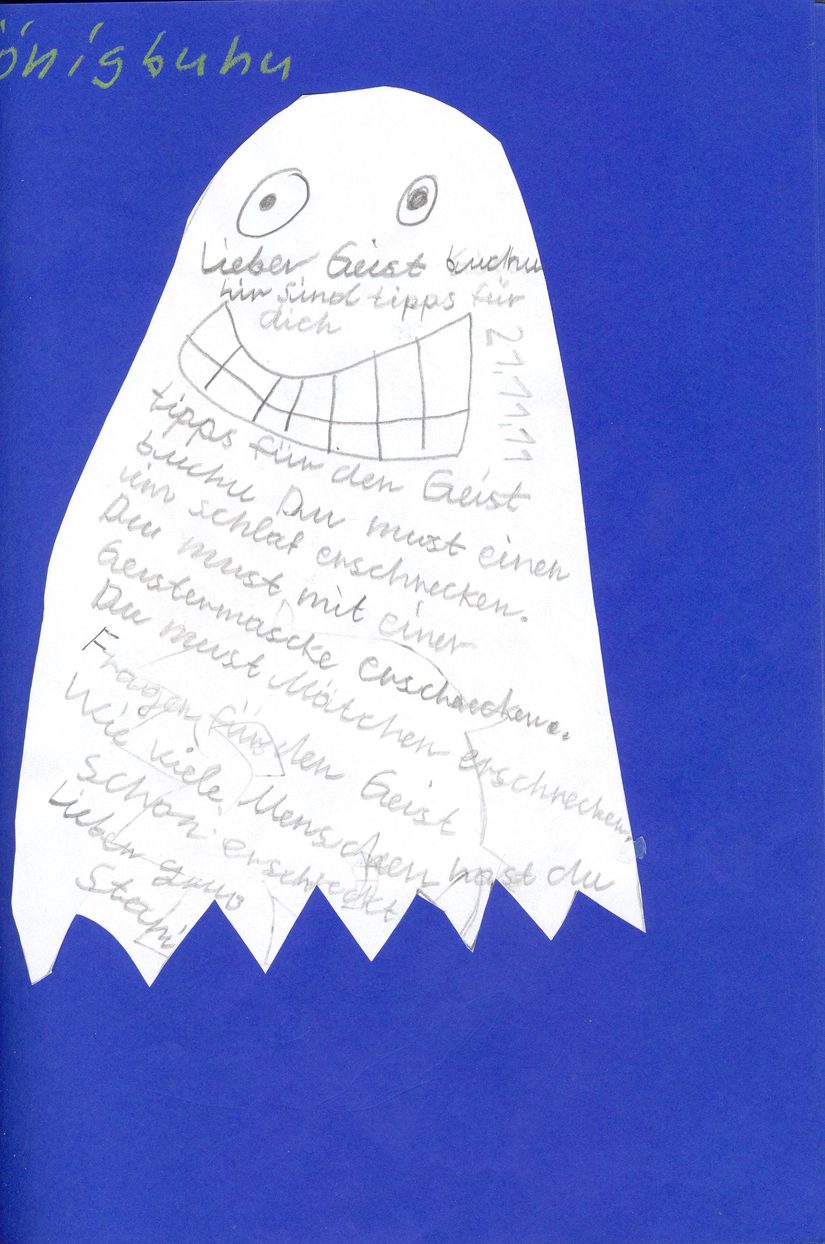 önigbuhu
Lieber Geist buchu
hir sind tipps für
dich
21.11.11
tipps für den Geist
buchu Du must einen
im schlaf erschrecken.
Du must mit einer
Geistermascke erschrecken.
Du must Mätchen erschrecken.
Fragen für den Geist
Wie viele Menschen hast du
schon erschreckt
Lieben grus